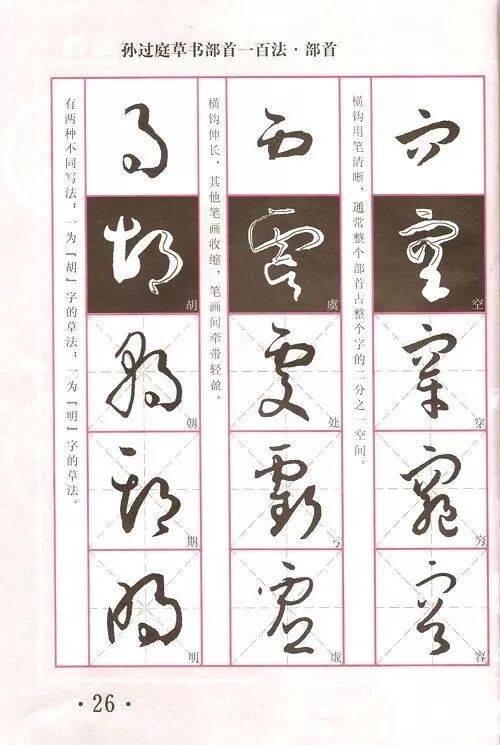 孙过庭草书部首一百法·部首
横钩用笔清晰，通常整个部首占整个字的二分之一空间。
空
穿
穷
容
横钩伸长，其他笔画收缩，笔画间牵带轻盈。
虞
处
亏
虚
有两种不同写法：一为『胡』字的草法；一为『明』字的草法。
胡
朝
期
明
·26·